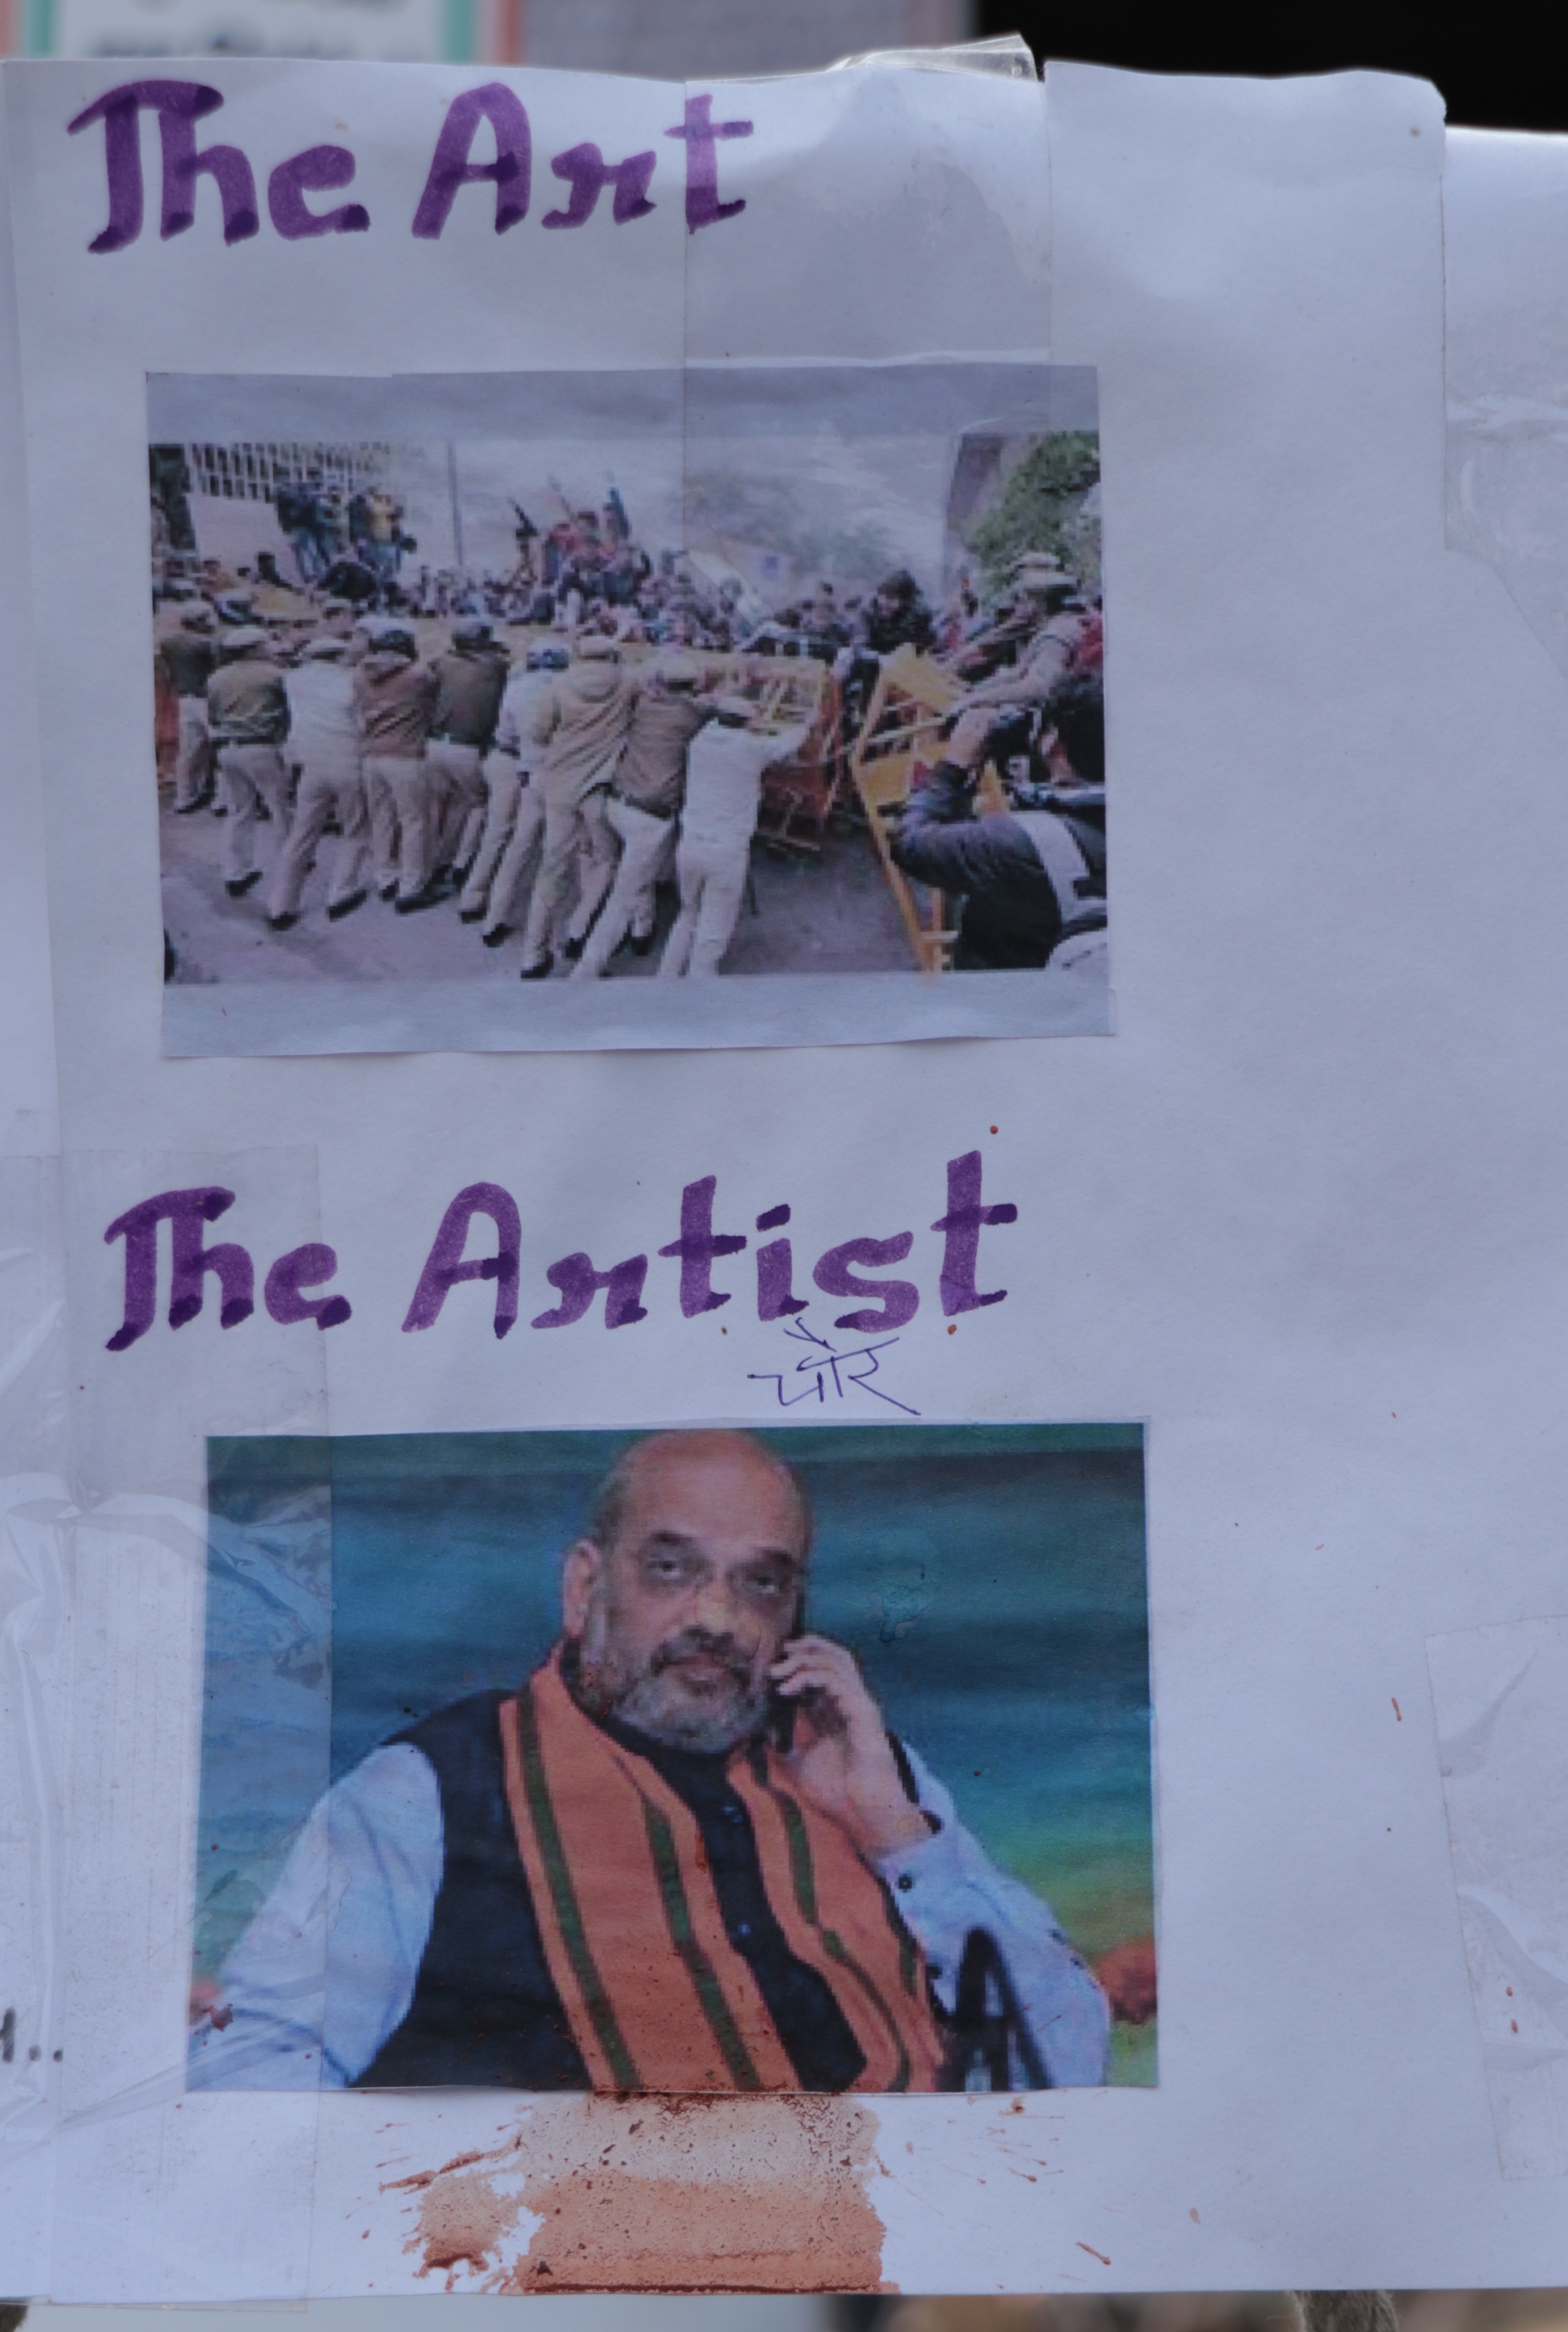 The Art
The Artist
चोर